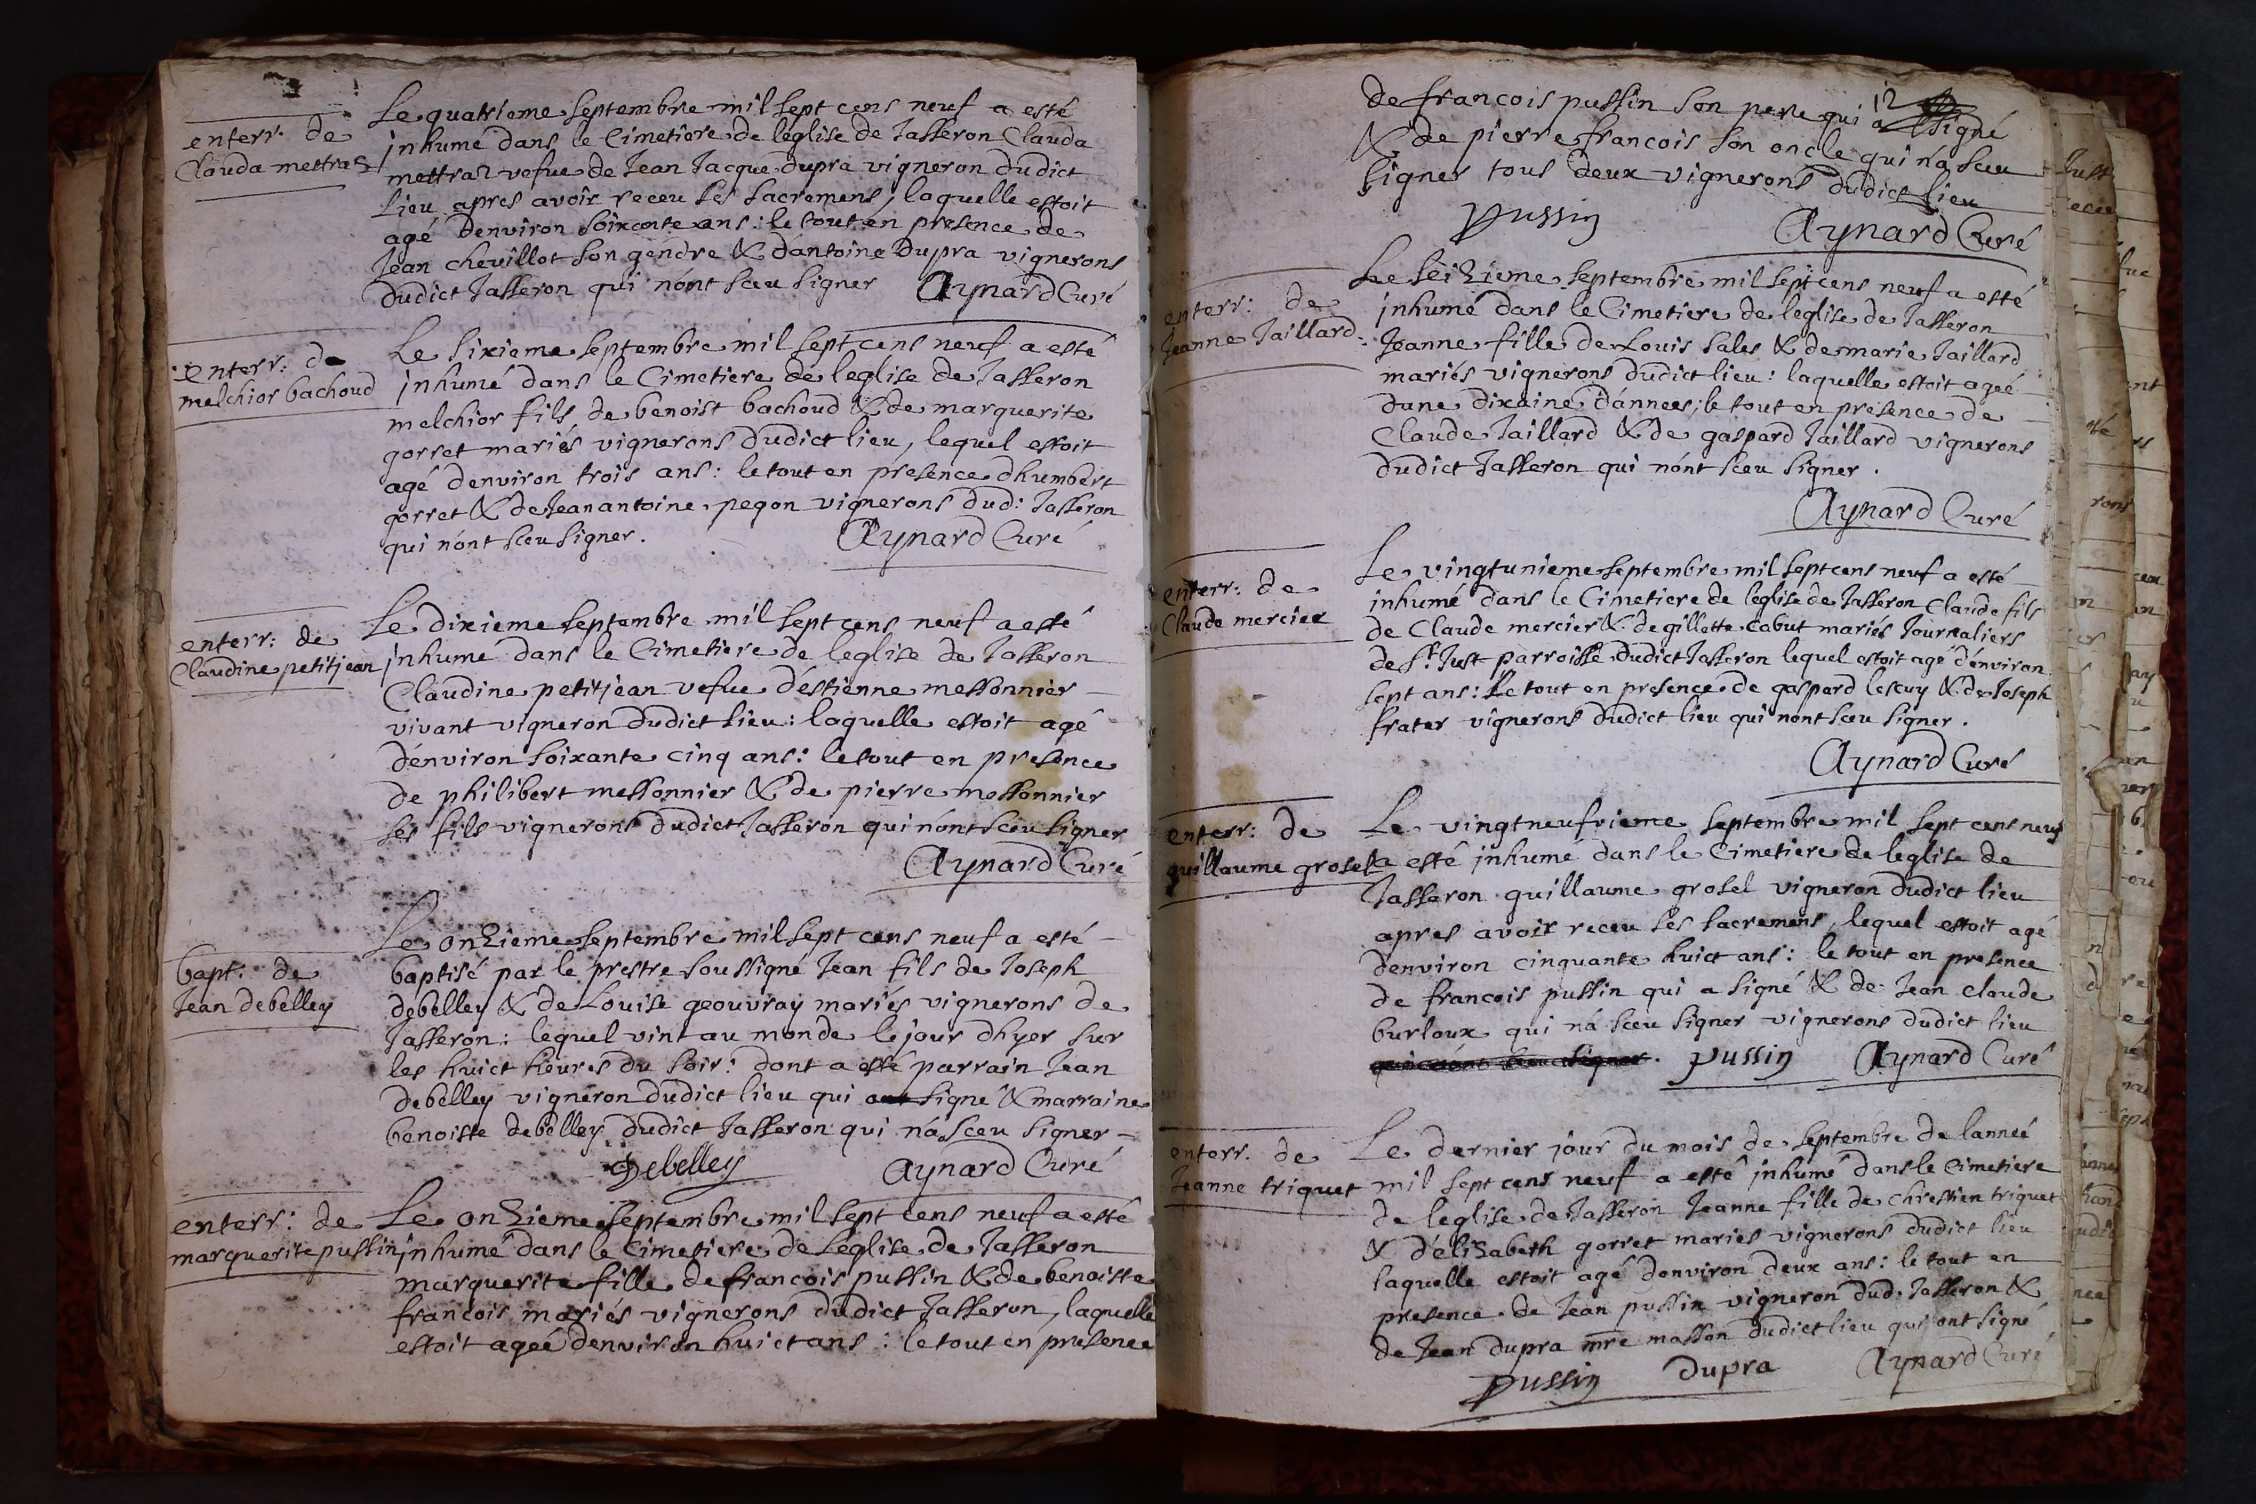 enterr. de
Clauda mettraz
Le quatrieme septembre mil sept cens neuf a esté
inhumé dans le Cimetiere de leglise de Jasseron Clauda
mettraz vefue de Jean Jacque Dupra vigneron dudict
lieu apres avoir receu ses sacremens, laquelle estoit
agé denviron soixante ans : le tout en presence de
Jean chevillot son gendre & dantoine Dupra vignerons
dudict Jasseron qui nónt sceu signer Aynard Curé
enterr: de
melchior bachoud
Le sixieme septembre mil sept cens neuf a esté
inhumé dans le Cimetiere de leglise de Jasseron
melchior fils de benoist bachoud & de marguerite
gorret mariés vignerons dudict lieu, lequel estoit
agé denviron trois ans : le tout en présence dhumbert
gorret & de Jean antoine pegon vignerons dud: Jasseron
qui nónt sceu signer. Aynard Curé
enterr: de
Claudine petitjean
Le dixieme septembre mil sept cens neuf a esté
inhumé dans le Cimetiere de leglise de Jasseron
Claudine petitjean vefue déstienne messonnier
vivant vigneron dudict lieu : laquelle estoit agé
dénviron soixante cinq ans : le tout en presence
de philibert messonnier & de pierre messonnier
ses fils vignerons dudict Jasseron qui nónt sceu signer
Aynard Curé
bapt: de
Jean debelley
Le onzieme septembre mil sept cens neuf a esté
baptisé par le prestre soussigné Jean fils de Joseph
debelley & de Louise geouvray mariés vignerons de
Jasseron : lequel vint au monde le jour dhyer sur
les huict heures du soir : dont a esté parrain Jean
debelley vigneron dudict lieu qui a signé & marraine
benoiste debelley dudict Jasseron qui ná sceu signer
Debelley Aynard Curé
enterr: de
marguerite pussin
Le onzieme septembre mil sept cens neuf a esté
inhumé dans le Cimetiere de Léglise de Jasseron
marguerite fille de françois pussin & de benoiste
françois mariés vignerons dudict Jasseron, laquelle
estoit ageé denviron huict ans : le tout en presence
12
de françois pussin son pere qui a signé
& de pierre françois son oncle qui ná sceu
signer tous deux vignerons dudict lieu
pussin Aynard Curé
enterr: de
Jeanne Jaillard
Le seizieme septembre mil sept cens neuf a esté
inhumé dans le Cimetiere de leglise de Jasseron
Jeanne fille de Louis sales & de marie Jaillard
mariés vignerons dudict lieu : laquelle estoit ageé
dune dixaine dánnees; le tout en presence de
Claude Jaillard & de gaspard Jaillard vignerons
dudict Jasseron qui nónt sceu signer.
Aynard Curé
enterr: de
Claude mercier
Le vingtunieme septembre mil sept cens neuf a esté
inhumé dans le Cimetiere de leglise de Jasseron Claude fils
de Claude mercier & de gillette cabut mariés Journaliers
de St Just parroisse dudict Jasseron lequel estoit agé dénviron
sept ans : Le tout en presence de gaspard lescuy & de Joseph
frater vignerons dudict lieu qui nont sceu signer.
Aynard Curé
enterr: de
guillaume grosel
Le vingtneufvieme septembre mil sept cens neuf
a esté inhumé dans le Cimetiere de leglise de
Jasseron guillaume grosel vigneron dudict lieu
apres avoir receu ses sacremens, lequel estoit agé
denviron cinquante huict ans : le tout en presence
de françois pussin qui a signé & de Jean claude
burloux qui ná sceu signer vignerons dudict lieu
pussin Aynard Curé
enterr. de
Jeanne triquet
Le dernier jour du mois de septembre de lanneé
mil sept cens neuf a esté inhumé dans le Cimetiere
de leglise de Jasseron Jeanne fille de chrestien triquet
& délizabeth gorret mariés vignerons dudict lieu
laquelle estoit agé denviron deux ans : le tout en
presence de Jean pussin vigneron dud. Jasseron &
de Jean dupra mre masson dudict lieu qui ont signé
pussin Dupra Aynard Curé